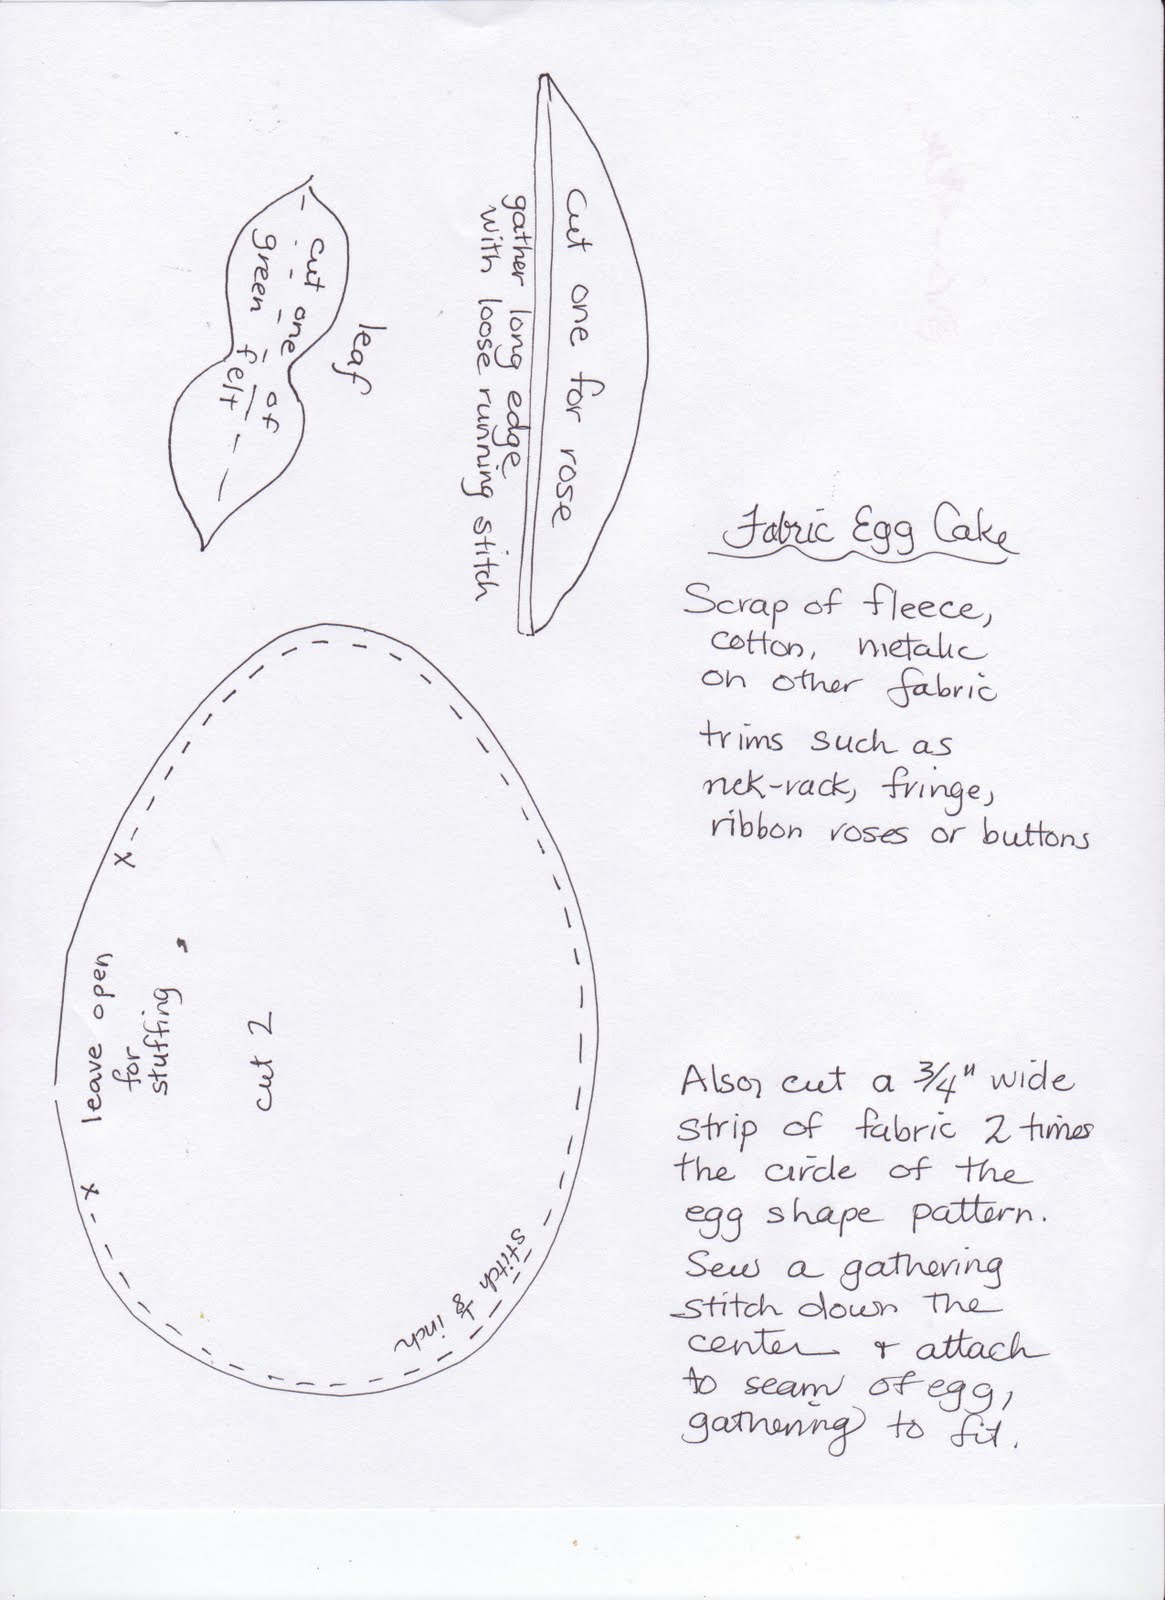 cut one for rose
gather long edge
with loose running stitch
leaf
cut one of
green felt
Fabric Egg Cake
Scrap of fleece,
cotton, metalic
on other fabric
trims such as
rick-rack, fringe,
ribbon roses or buttons
x
leave open
for
stuffing
x
cut 2
stitch 1/8 inch
Also, cut a 3/4" wide
strip of fabric 2 times
the circle of the
egg shape pattern.
Sew a gathering
stitch down the
center & attach
to seam of egg,
gathering to fit.